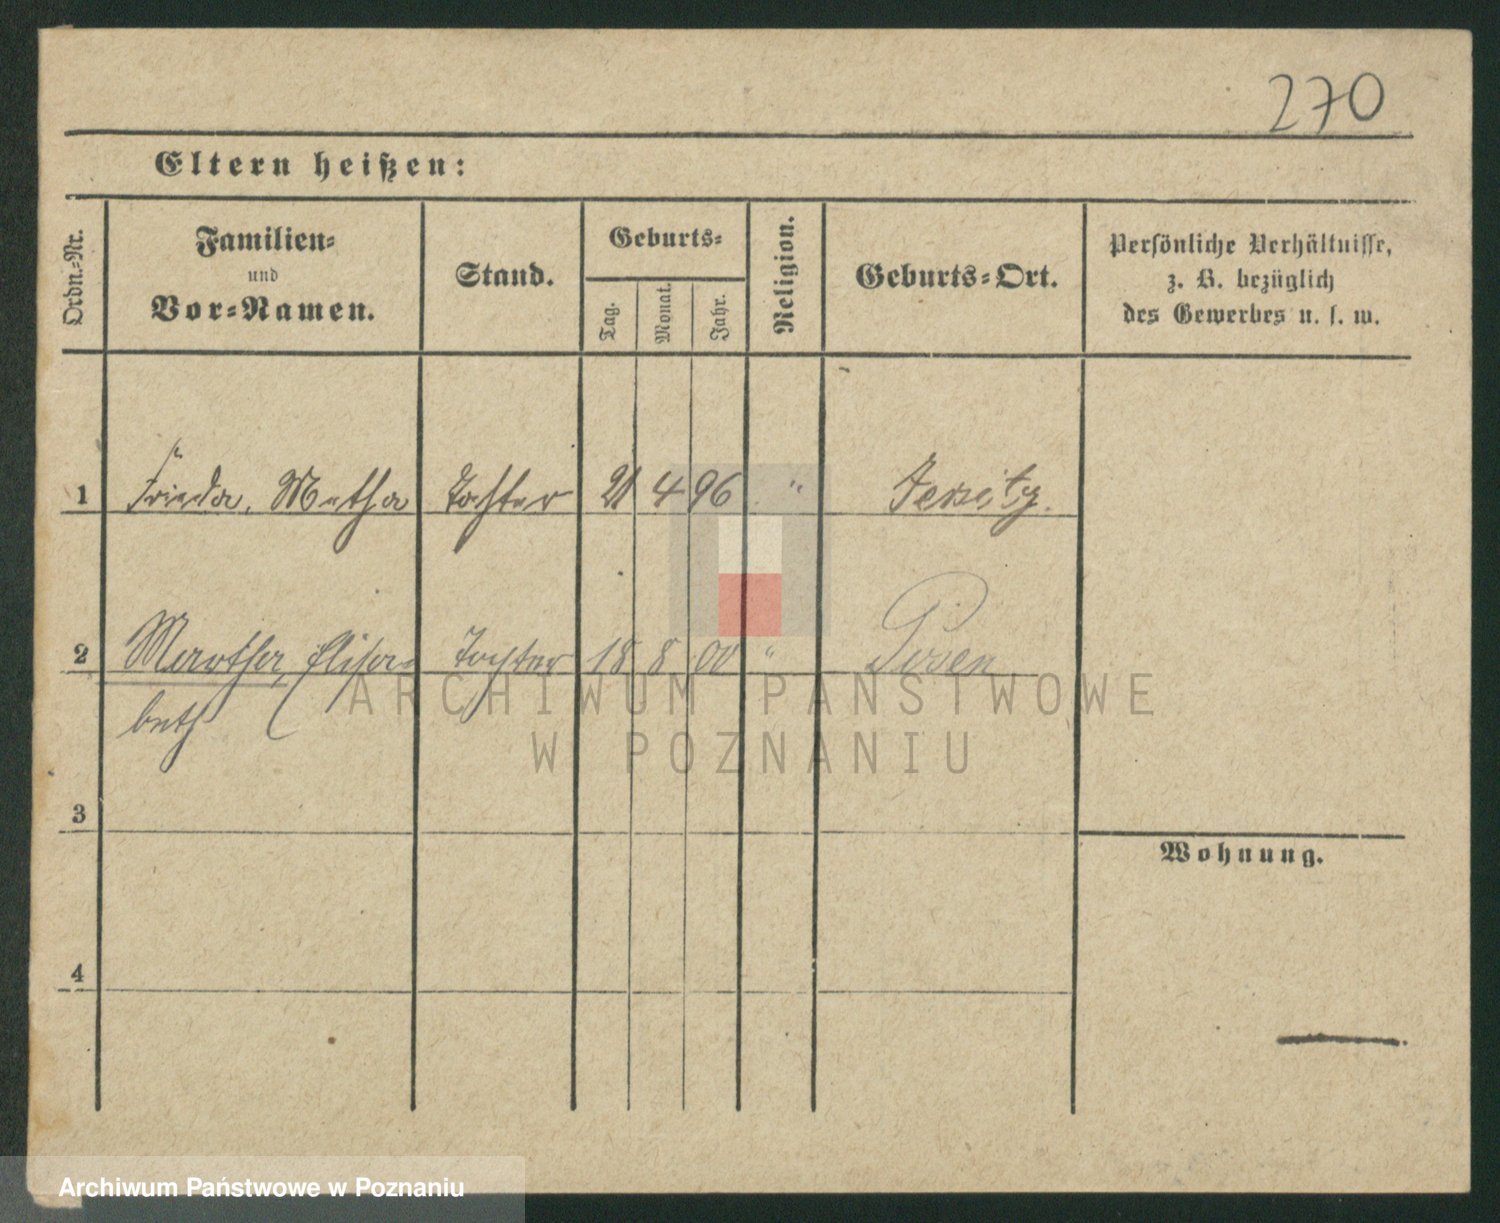 270
Eltern heißen:
Ordn.-Nr.
Familien-
und
Vor-Namen.
Stand.
Geburts-
Tag.
Monat.
Jahr.
Religion.
Geburts-Ort.
Persönliche Verhältnisse,
z. B. bezüglich
des Gewerbes u. s. w.
1 Frieda, Metha Tochter 21 4 96 " Jersitz.
2 Martha, Elisa- Tochter 18 8 00 " Posen
beth
3
Wohnung.
4
ARCHIWUM PAŃSTWOWE
W POZNANIU
Archiwum Państwowe w Poznaniu